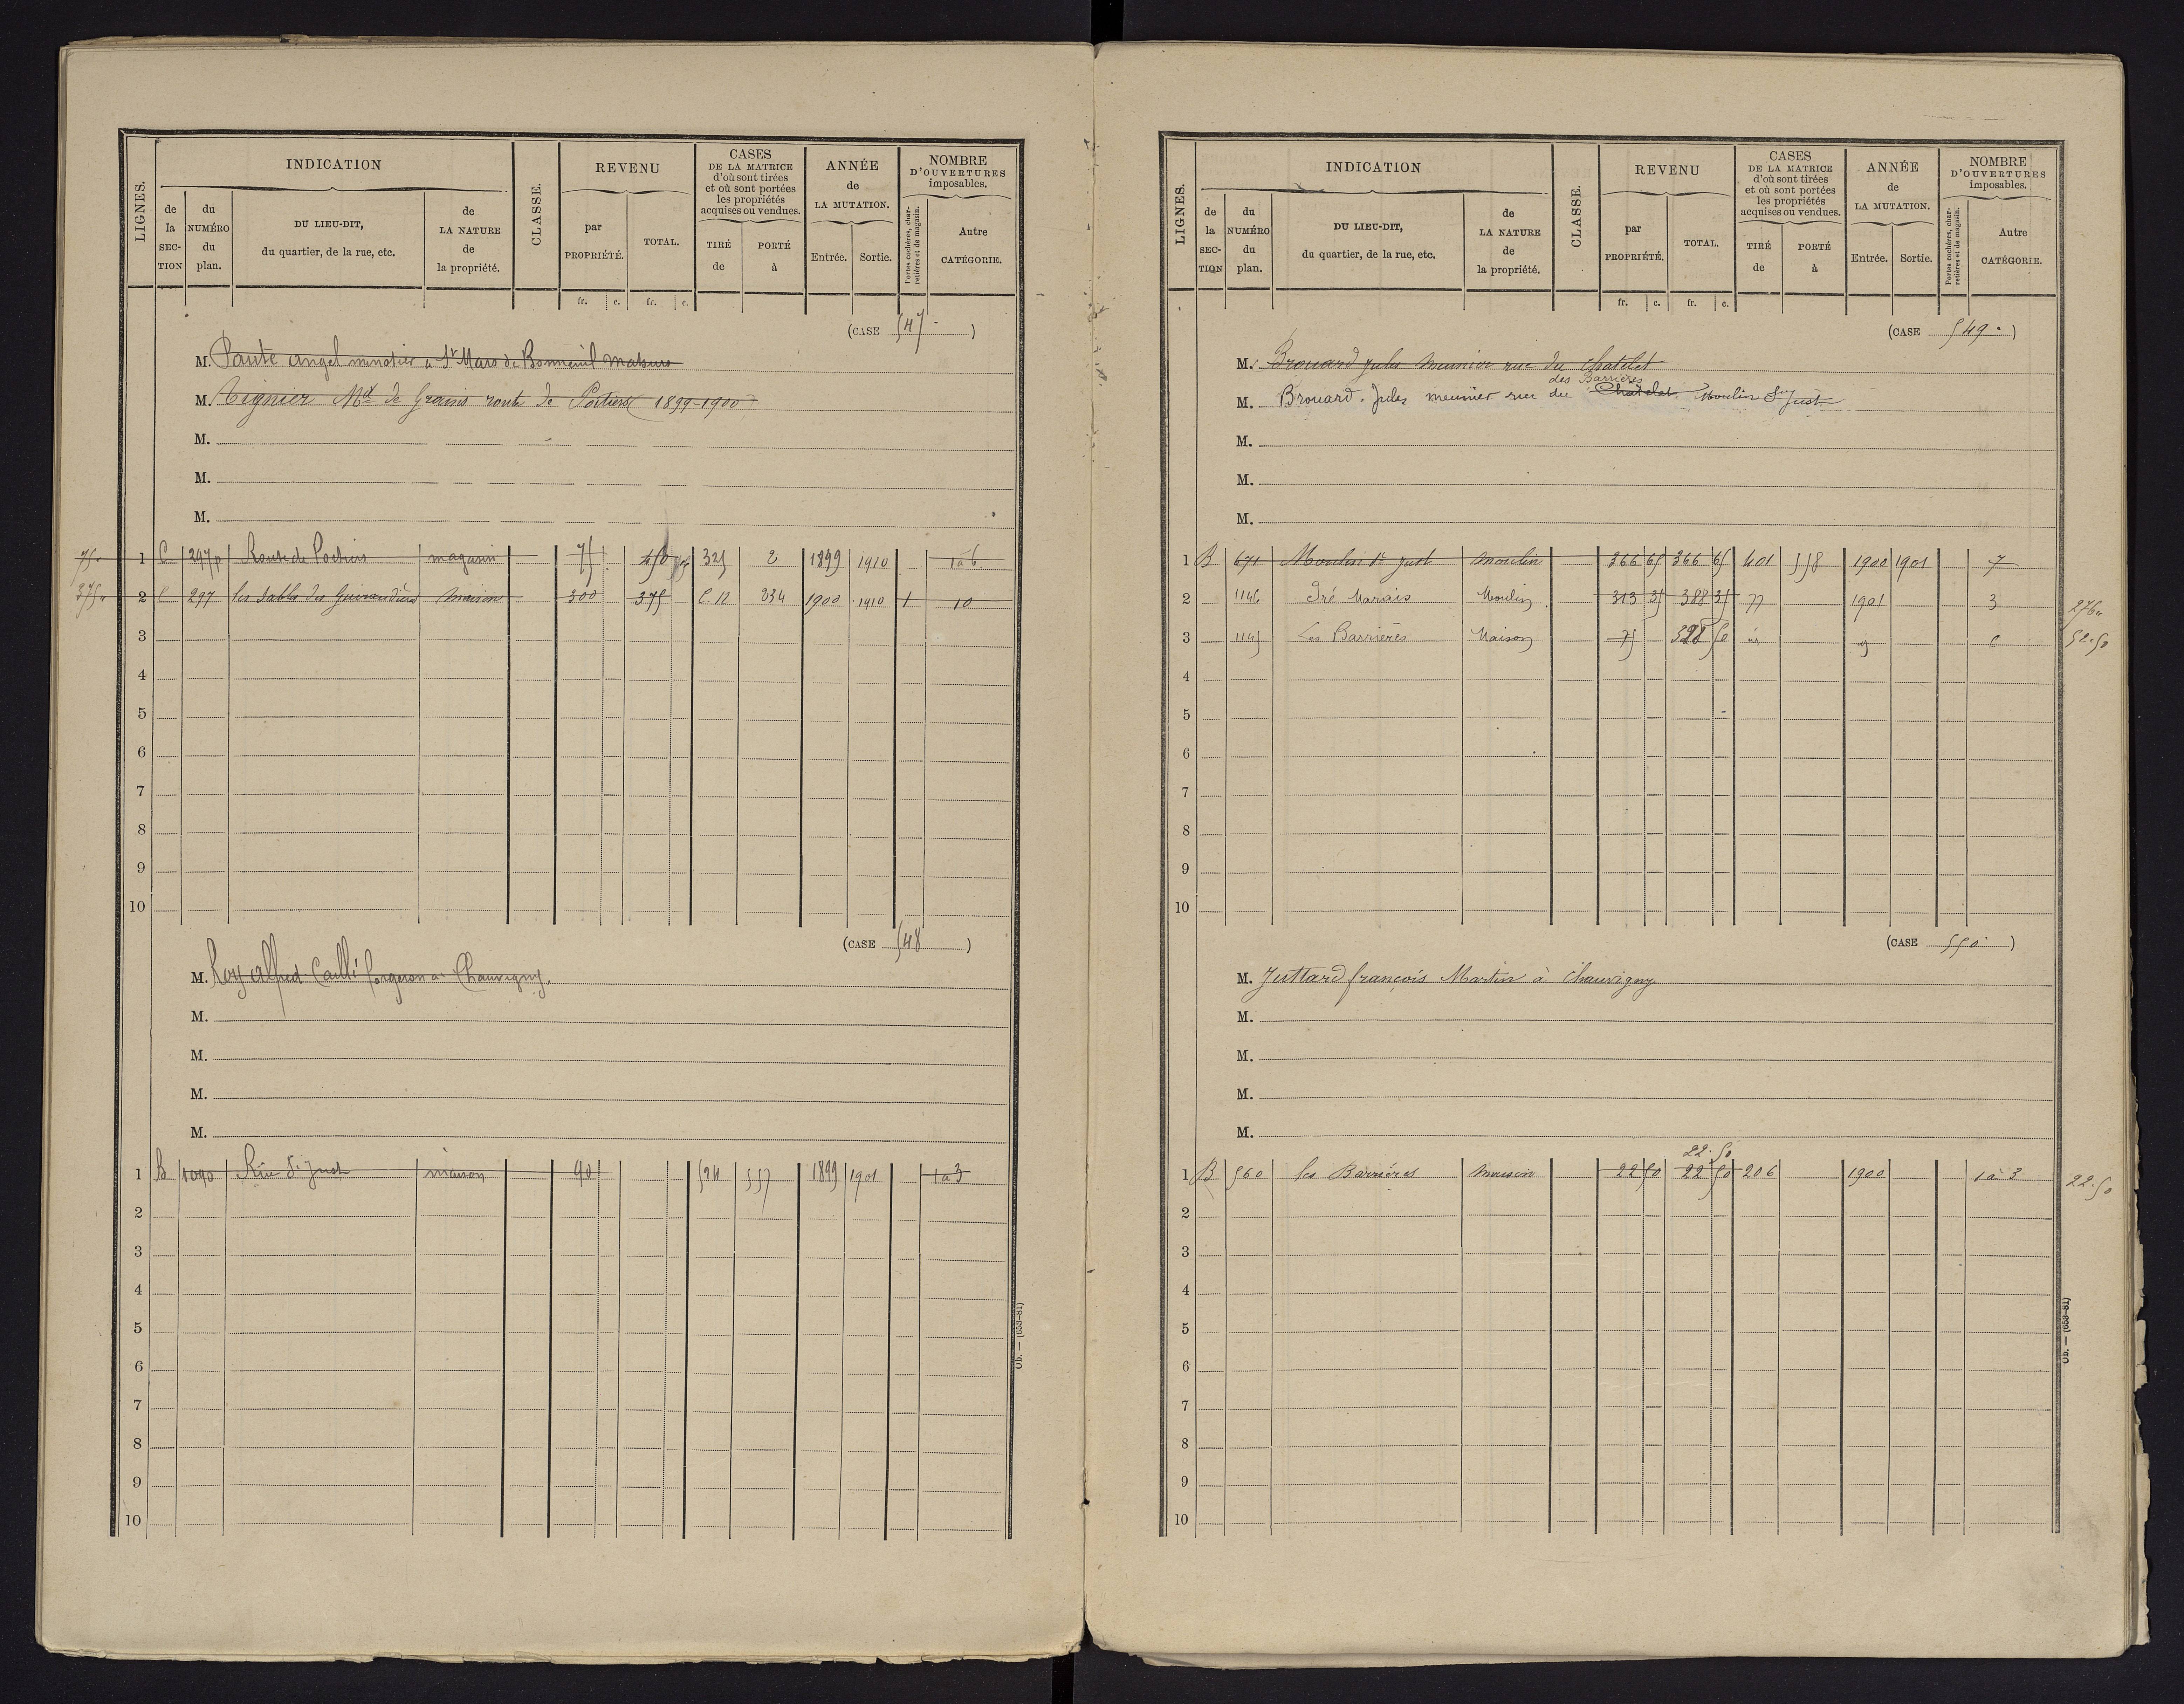 LIGNES.
INDICATION
CLASSE.
REVENU
CASES
DE LA MATRICE
d'où sont tirées
et où sont portées
les propriétés
acquises ou vendues.
ANNÉE
de
LA MUTATION.
NOMBRE
D'OUVERTURES
imposables.
de la SEC-TION
du NUMÉRO du plan.
DU LIEU-DIT,
du quartier, de la rue, etc.
de LA NATURE de la propriété.
par PROPRIÉTÉ.
TOTAL.
TIRÉ de
PORTÉ à
Entrée.
Sortie.
Portes cochères, charretières et de magasin.
Autre CATÉGORIE.
fr. c. fr. c.
(CASE 547 )
M. angel minotier a St Mars de Bonneuil Matours
M. Tignier Md de Grains route de Poitiers (1899-1900)
M.
M.
M.
75 1 C 297p Route de Poitiers magasin 75 450 325 2 1899 1910 1 à 6
375 2 C 297 les Sables des maison 300 375 C.12 234 1900 1910 1 10
3
4
5
6
7
8
9
10
(CASE 548 )
M. Roy alfred Caillé forgeron à Chauvigny.
M.
M.
M.
M.
1 B 1090 Rue St Just maison 90 524 557 1899 1901 1 à 3
2
3
4
5
6
7
8
9
10
Ob. — (653-81)
LIGNES.
INDICATION
CLASSE.
REVENU
CASES
DE LA MATRICE
d'où sont tirées
et où sont portées
les propriétés
acquises ou vendues.
ANNÉE
de
LA MUTATION.
NOMBRE
D'OUVERTURES
imposables.
de la SEC-TION
du NUMÉRO du plan.
DU LIEU-DIT,
du quartier, de la rue, etc.
de LA NATURE de la propriété.
par PROPRIÉTÉ.
TOTAL.
TIRÉ de
PORTÉ à
Entrée.
Sortie.
Portes cochères, charretières et de magasin.
Autre CATÉGORIE.
fr. c. fr. c.
(CASE 549 )
M. Brouard jules meunier rue du chatelet
des Barrières
M. Brouard. Jules meunier rue du Chatelet Moulin St Just
M.
M.
M.
1 B 671 Moulin St just moulin 366 65 366 65 401 558 1900 1901 7
2 1146 Pré Marais Moulin 313 35 388 35 77 1901 3 276
3 1145 Les Barrières Maison 75 328 50 6 52.50
4
5
6
7
8
9
10
(CASE 550 )
M. Juttard françois Martin à Chauvigny
M.
M.
M.
M.
22.50
1 B 560 les Barrières maison 22 50 22 50 206 1900 1 à 3 22.50
2
3
4
5
6
7
8
9
10
Ob. — (653-81)